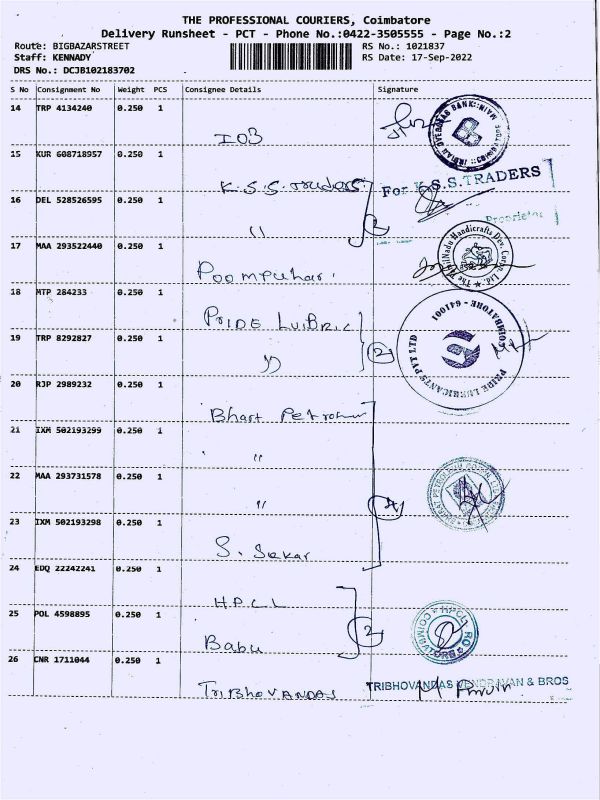 THE PROFESSIONAL COURIERS, Coimbatore
Delivery Runsheet - PCT - Phone No.:0422-3505555 - Page No.:2
Route: BIGBAZARSTREET RS No.: 1021837
Staff: KENNADY RS Date: 17-Sep-2022
DRS No.: DCJB102183702
S No Consignment No Weight PCS Consignee Details Signature
14 TRP 4134240 0.250 1
IOB
INDIAN OVERSEAS BANK MAIN COIMBATORE
15 KUR 608718957 0.250 1
K.S.S. Traders
For K.S.S.TRADERS
Proprietor
16 DEL 528526595 0.250 1
" 2
17 MAA 293522440 0.250 1
Poompuhar
The TamilNadu Handicrafts Dev. Corpn. Ltd.
18 MTP 284233 0.250 1
PRIDE LUIBRIC
PRIDE LUBRICANTS PVT LTD COIMBATORE - 641001
19 TRP 8292827 0.250 1
" 2
20 RJP 2989232 0.250 1
Bhart Petroham
21 IXM 502193299 0.250 1
"
22 MAA 293731578 0.250 1
" 4
23 IXM 502193298 0.250 1
S. Sekar
24 EDQ 22242241 0.250 1
H.P.C.L
25 POL 4598895 0.250 1
Babu 2
HPCL RO COIMBATORE
26 CNR 1711044 0.250 1
TRIBHOVANDAS
TRIBHOVANDAS VENDRAVAN & BROS